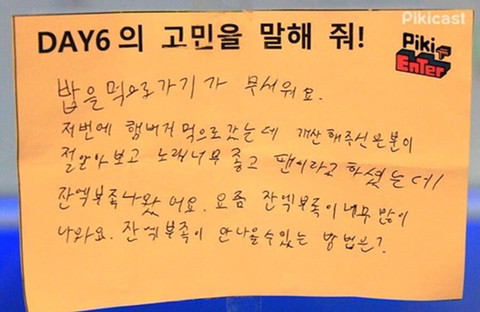 Pikicast
DAY6의 고민을 말해 줘!
Piki
EnTer
밥을 먹으로가기가 무서워요.
저번에 햄버거 먹으로갔는데 계산해주신분이
절알아보고 노래너무좋고 팬이라고하셨는데
잔엑부족나왔어요. 요즘 잔엑부족이너무많이
나와요. 잔엑부족이 안나올수있는 방법은?